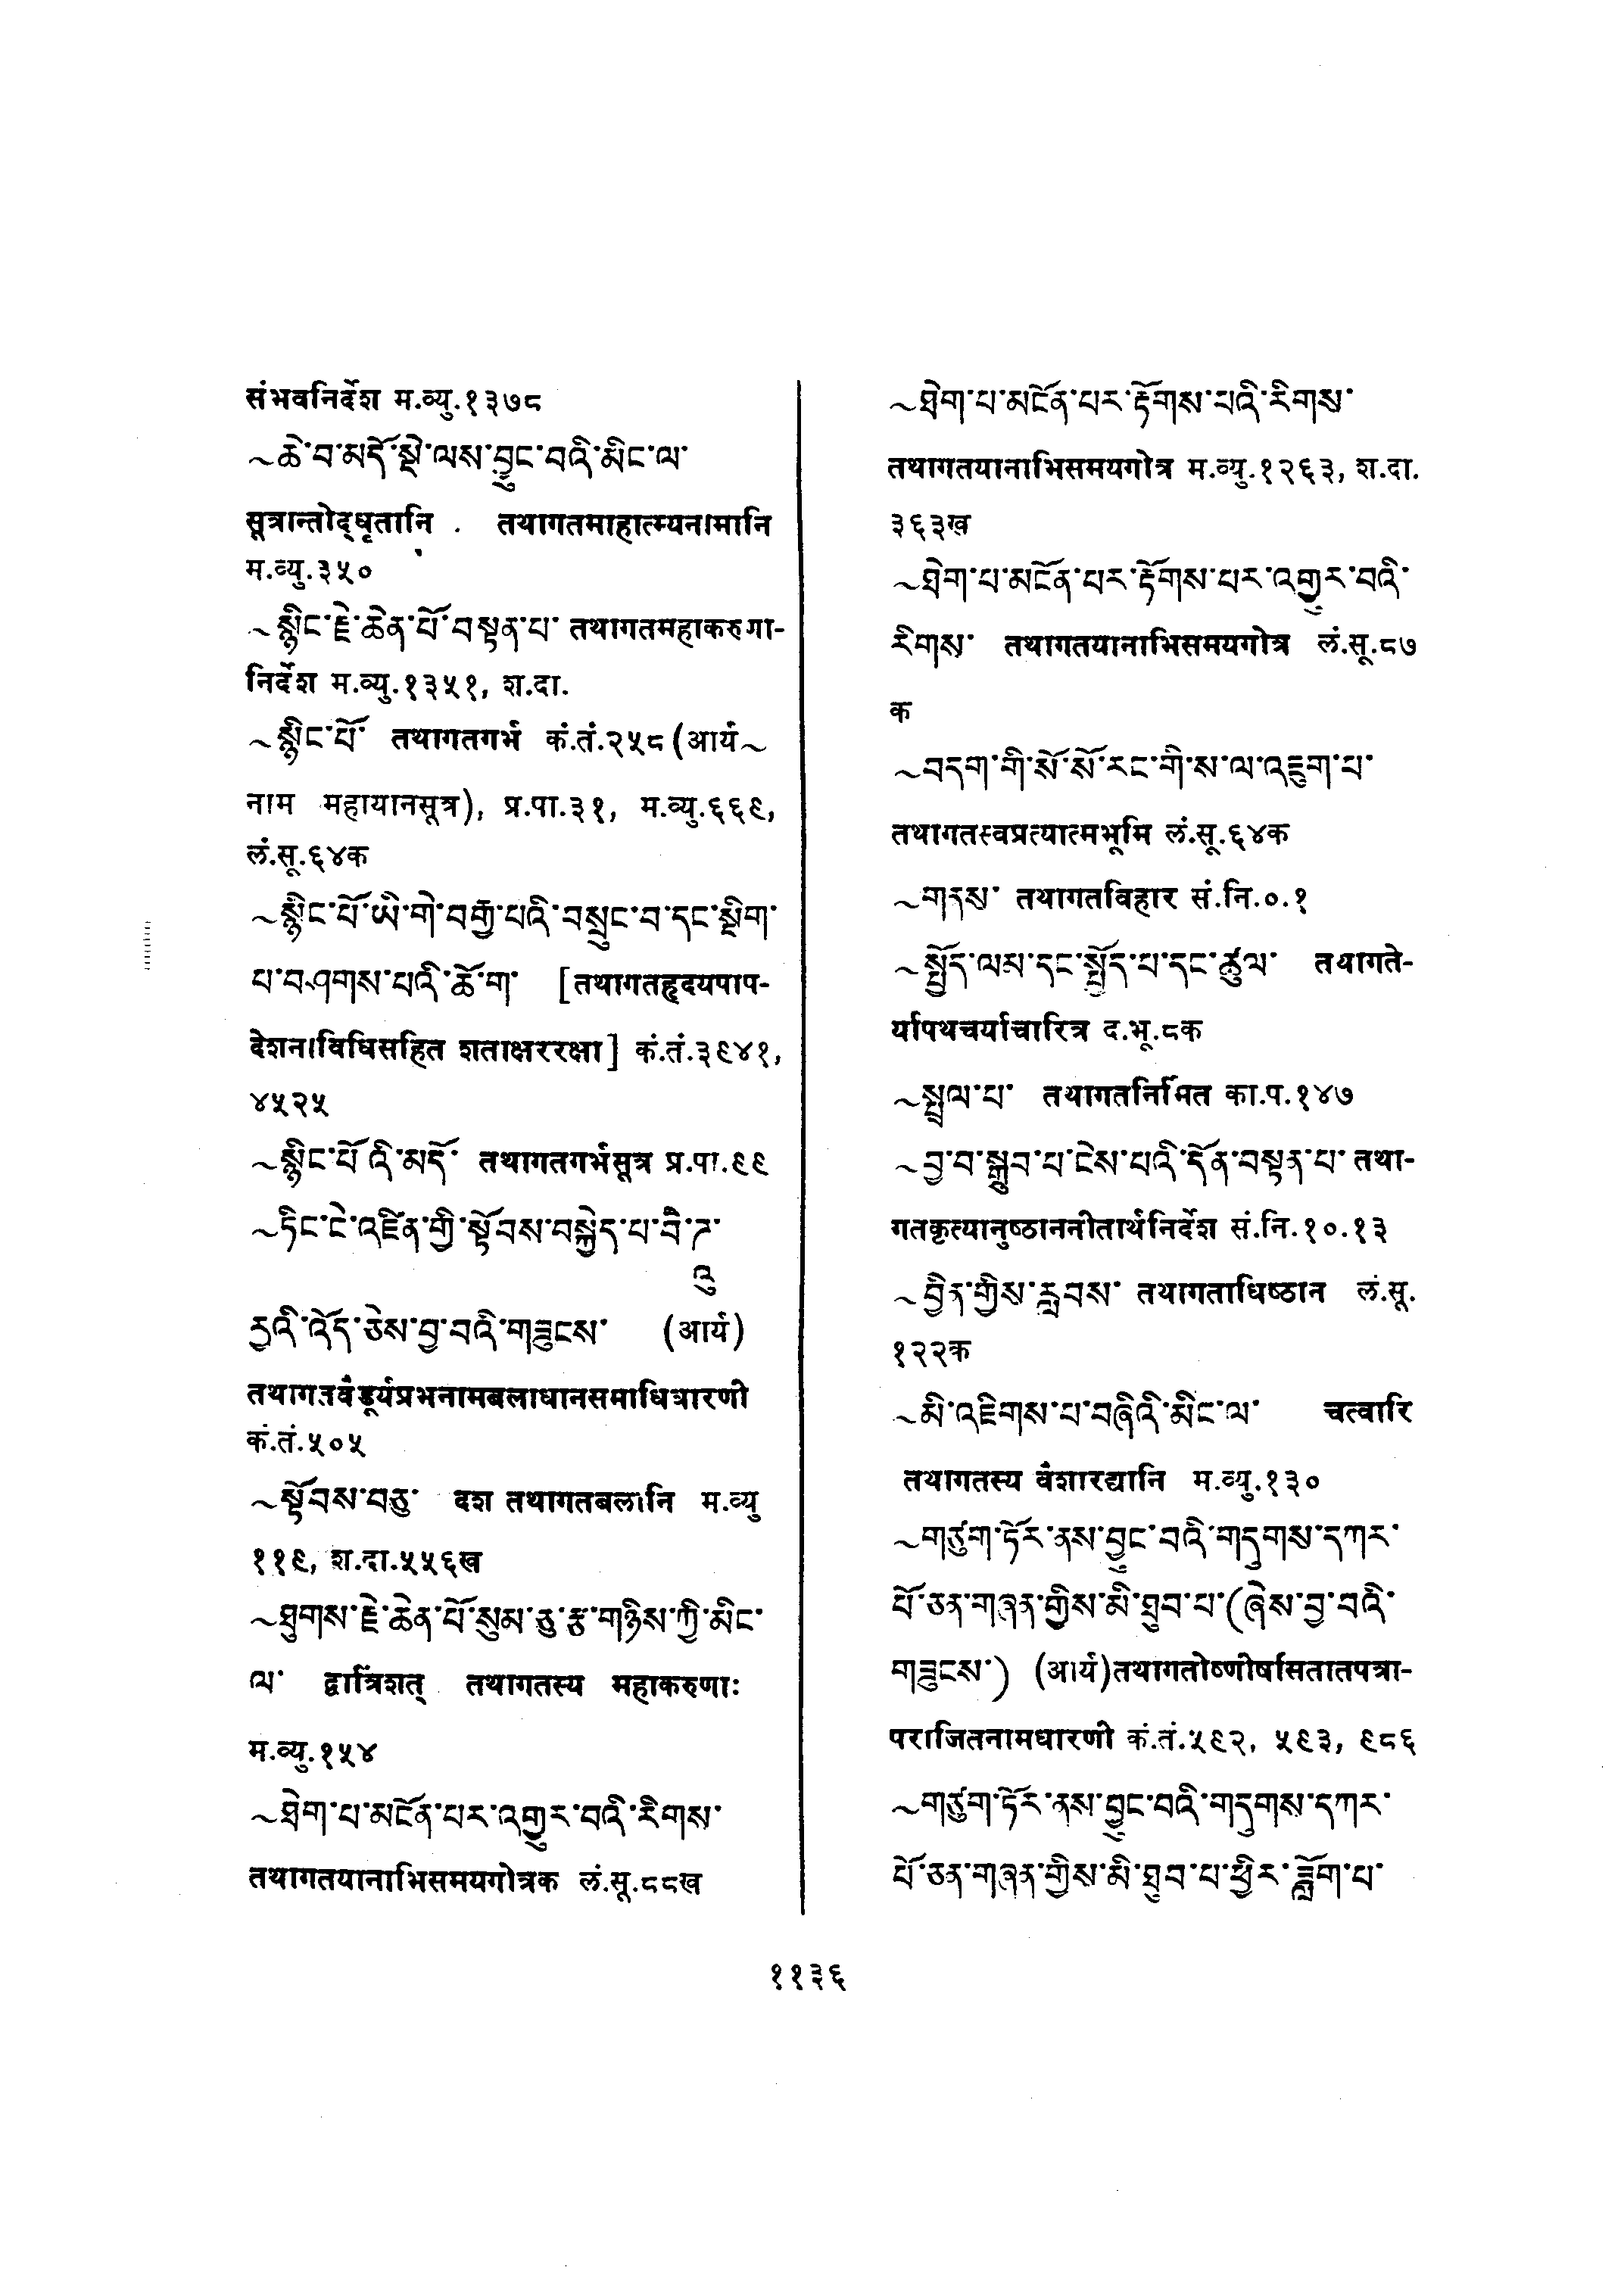 संभवनिर्देश म.व्यु.१३७८
~ཆེ་བ་མདོ་སྡེ་ལས་བྱུང་བའི་མིང་ལ་
सूत्रान्तोद्धृतानि . तथागतमाहात्म्यनामानि
म.व्यु.३५०
~སྙིང་རྗེ་ཆེན་པོ་བསྟན་པ་ तथागतमहाकरुणा-
निर्देश म.व्यु.१३५१, श.दा.
~སྙིང་པོ་ तथागतगर्भ कं.तं.२५८ (आर्य~
नाम महायानसूत्र), प्र.पा.३१, म.व्यु.६६९,
लं.सू.६४क
~སྙིང་པོ་ཡི་གེ་བརྒྱ་པའི་བསྲུང་བ་དང་སྡིག་
པ་བཤགས་པའི་ཆོ་ག་ [तथागतहृदयपाप-
देशनाविधिसहित शताक्षररक्षा] कं.तं.३९४१,
४५२५
~སྙིང་པོའི་མདོ་ तथागतगर्भसूत्र प्र.पा.९९
~ཏིང་ངེ་འཛིན་གྱི་སྟོབས་བསྐྱེད་པ་བཻ་ཌཱུ་
རྱའི་འོད་ཅེས་བྱ་བའི་གཟུངས་ (आर्य)
तथागतवैडूर्यप्रभनामबलाधानसमाधिधारणी
कं.तं.५०५
~སྟོབས་བཅུ་ दश तथागतबलानि म.व्यु
११९, श.दा.५५६ख
~ཐུགས་རྗེ་ཆེན་པོ་སུམ་ཅུ་རྩ་གཉིས་ཀྱི་མིང་
ལ་ द्वात्रिंशत् तथागतस्य महाकरुणाः
म.व्यु.१५४
~ཐེག་པ་མངོན་པར་འགྱུར་བའི་རིགས་
तथागतयानाभिसमयगोत्रक लं.सू.८८ख
~ཐེག་པ་མངོན་པར་རྟོགས་པའི་རིགས་
तथागतयानाभिसमयगोत्र म.व्यु.१२६३, श.दा.
३६३ख
~ཐེག་པ་མངོན་པར་རྟོགས་པར་འགྱུར་བའི་
རིགས་ तथागतयानाभिसमयगोत्र लं.सू.८७
क
~བདག་གི་སོ་སོ་རང་གི་ས་ལ་འཇུག་པ་
तथागतस्वप्रत्यात्मभूमि लं.सू.६४क
~གནས་ तथागतविहार सं.नि.०.१
~སྤྱོད་ལམ་དང་སྤྱོད་པ་དང་ཚུལ་ तथागते-
र्यापथचर्याचारित्र द.भू.८क
~སྤྲུལ་པ་ तथागतनिर्मित का.प.१४७
~བྱ་བ་སྒྲུབ་པ་ངེས་པའི་དོན་བསྟན་པ་ तथा-
गतकृत्यानुष्ठाननीतार्थनिर्देश सं.नि.१०.१३
~བྱིན་གྱིས་རླབས་ तथागताधिष्ठान लं.सू.
१२२क
~མི་འཇིགས་པ་བཞིའི་མིང་ལ་ चत्वारि
तथागतस्य वैशारद्यानि म.व्यु.१३०
~གཙུག་ཏོར་ནས་བྱུང་བའི་གདུགས་དཀར་
པོ་ཅན་གཞན་གྱིས་མི་ཐུབ་པ་(ཞེས་བྱ་བའི་
གཟུངས་) (आर्य)तथागतोष्णीषसितातपत्रा-
पराजितनामधारणी कं.तं.५९२, ५९३, ९८६
~གཙུག་ཏོར་ནས་བྱུང་བའི་གདུགས་དཀར་
པོ་ཅན་གཞན་གྱིས་མི་ཐུབ་པ་ཕྱིར་ཟློག་པ་
११३६